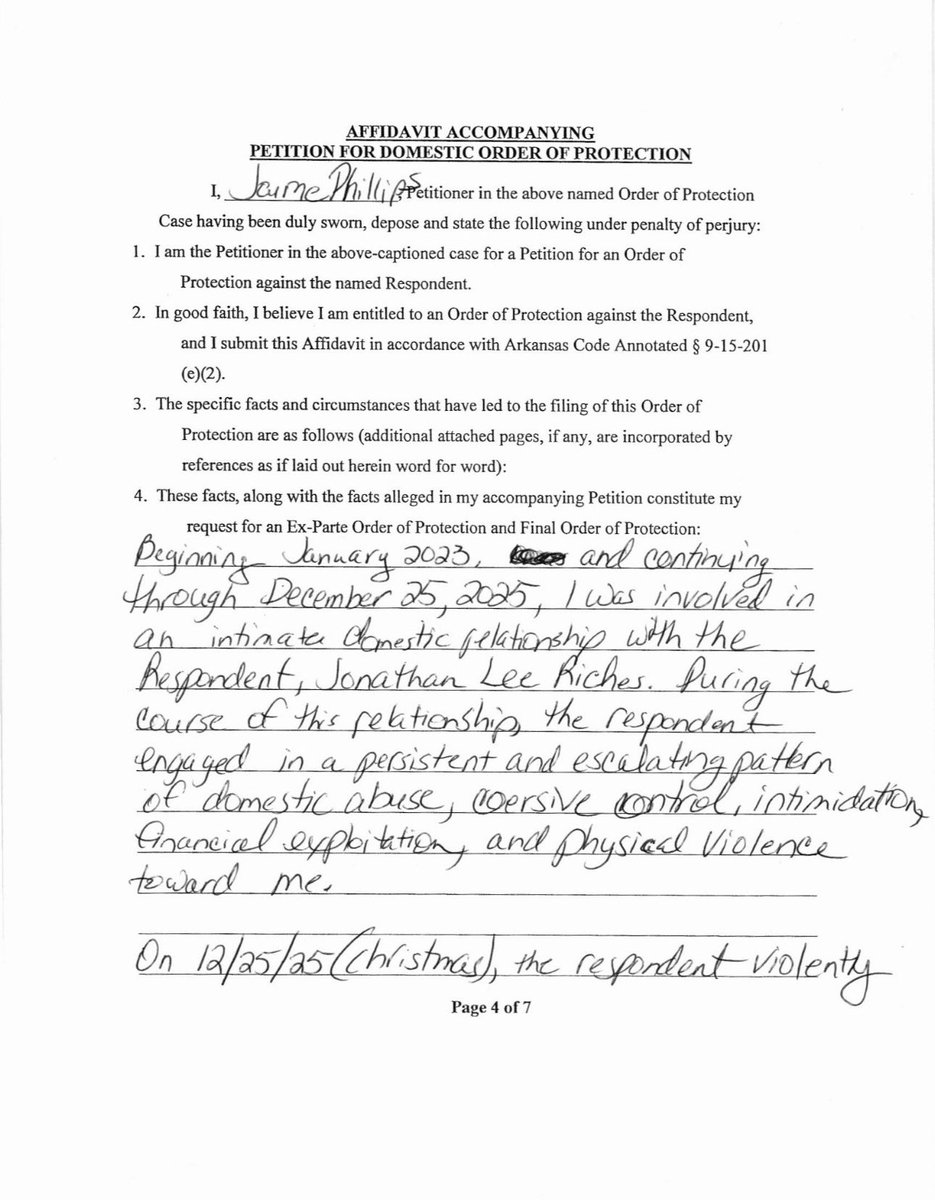 AFFIDAVIT ACCOMPANYING
PETITION FOR DOMESTIC ORDER OF PROTECTION
I, Jaime Phillips, Petitioner in the above named Order of Protection
Case having been duly sworn, depose and state the following under penalty of perjury:
1. I am the Petitioner in the above-captioned case for a Petition for an Order of
Protection against the named Respondent.
2. In good faith, I believe I am entitled to an Order of Protection against the Respondent,
and I submit this Affidavit in accordance with Arkansas Code Annotated § 9-15-201
(e)(2).
3. The specific facts and circumstances that have led to the filing of this Order of
Protection are as follows (additional attached pages, if any, are incorporated by
references as if laid out herein word for word):
4. These facts, along with the facts alleged in my accompanying Petition constitute my
request for an Ex-Parte Order of Protection and Final Order of Protection:
Beginning January 2023, and continuing
through December 25, 2025, I was involved in
an intimate domestic relationship with the
Respondent, Jonathan Lee Riches. During the
course of this relationship, the respondent
engaged in a persistent and escalating pattern
of domestic abuse, coersive control, intimidation,
financial exploitation, and physical violence
toward me.
On 12/25/25 (Christmas), the respondent violently
Page 4 of 7